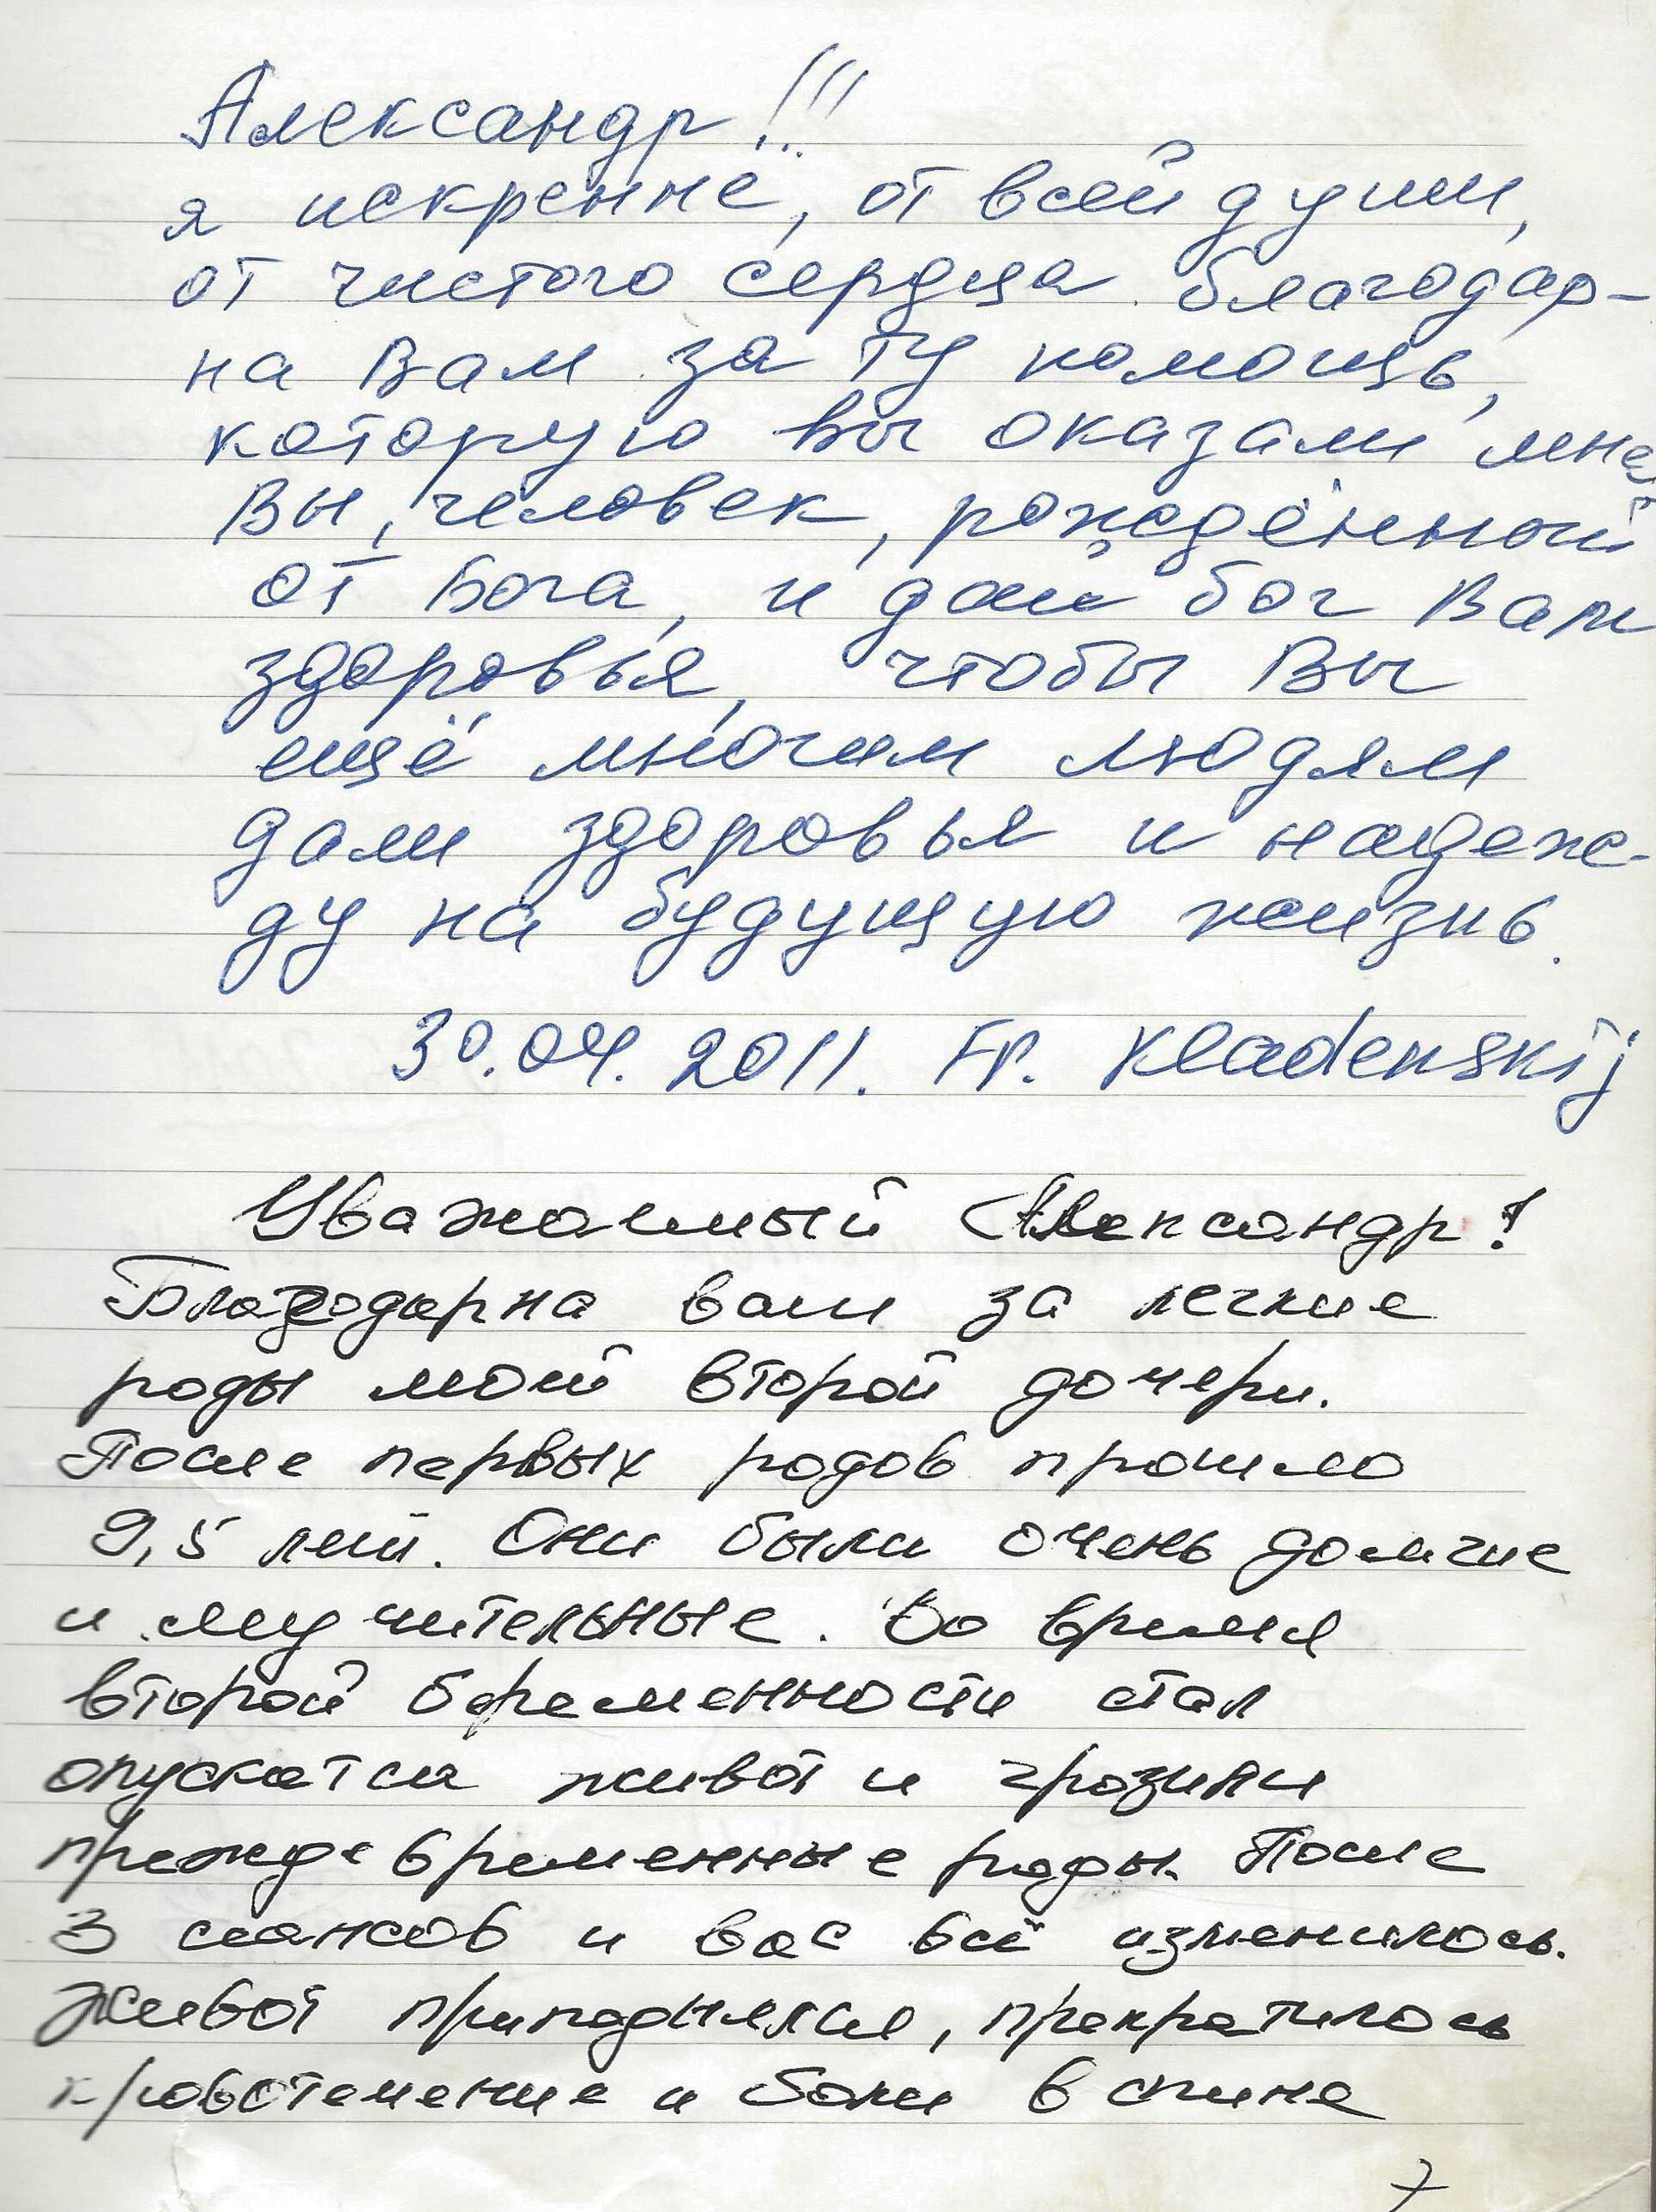 Александр!!!
я искренне, от всей души,
от чистого сердца благодар-
на Вам за ту помощь,
которую вы оказали мне,
Вы, человек, рождённый
от Бога, и дай бог Вам
здоровья, чтобы Вы
ещё многим людям
дали здоровья и надеж-
ду на будущую жизнь.
30.04.2011. Fr. Kladenskij
Уважаемый Александр!
Благодарна вам за легкие
роды моей второй дочери.
После первых родов прошло
9,5 лет. Они были очень долгие
и мучительные. Во время
второй беременности стал
опускатся живот и грозили
преждевременные роды. После
3 сеансов и вас всё изменилось.
Живот приподнялся, прекратилось
кровотечение и боли в спине
7